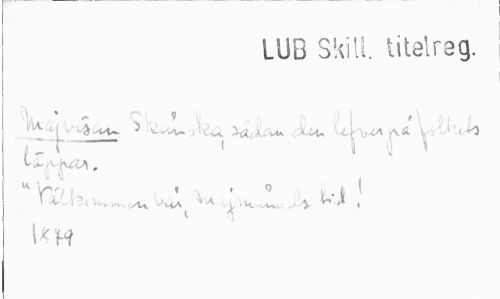 LUB Skill. titelreg.
Majvisan Skånska, sådan den lefver på folkets
läppar.
"Välkommen vår, majmånads tid!
1879